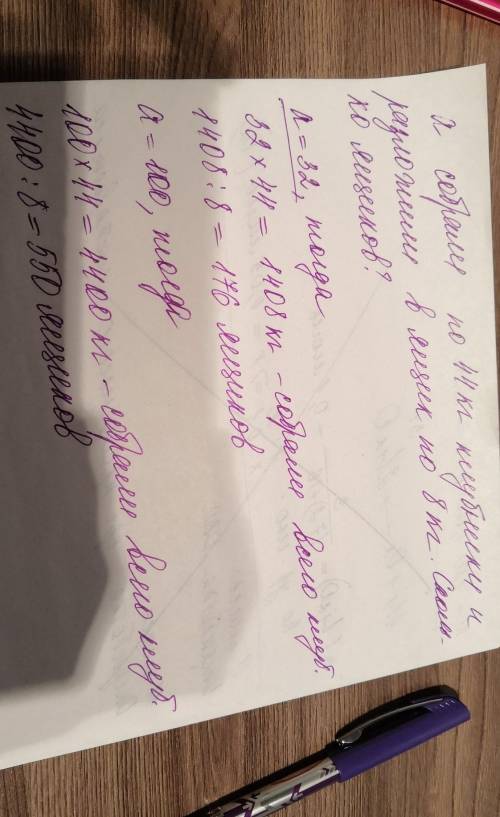 х собрали по 44 кг клубники и
разложили в ящик по 8 кг. Сколь-
ко ящиков?
а = 32, тогда
32 × 44 = 1408 кг - собрали всего клуб.
1408 : 8 = 176 ящиков
а = 100, тогда
100 × 44 = 4400 кг - собрали всего клуб.
4400 : 8 = 550 ящиков